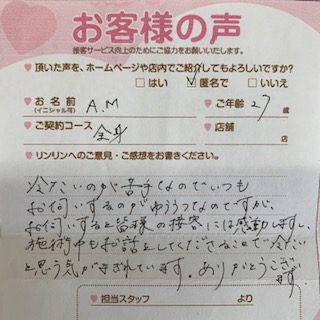 お客様の声
接客サービス向上のためにご協力をお願いいたします。
♥頂いた声を、ホームページや店内でご紹介してもよろしいですか?
□はい ☑匿名で □いいえ
♥お名前 A.M ♥ご年齢 27 歳
(イニシャル可)
♥ご契約コース 全身 ♥店舗 店
♥リンリンへのご意見・ご感想をお書きください。
冷たいのが苦手なのでいつも
お伺いするのがゆううつなのですが、
お伺いすると皆様の接客には感動しますし、
施術中もお話をしてくださることで冷たい
と思う気がまぎれています。ありがとうござい
ます。
♥担当スタッフ より